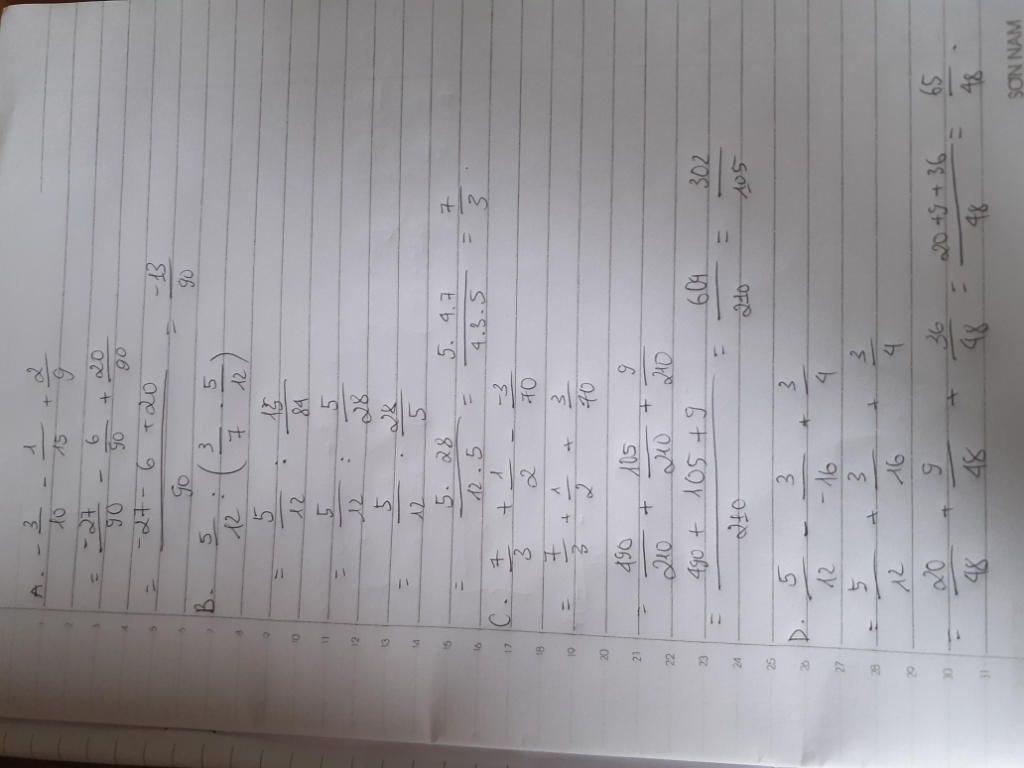 A. -3/10 - 1/15 + 2/9
= -27/90 - 6/90 + 20/90
= -27 - 6 + 20/90 = -13/90
B. 5/12 : (3/7 . 5/12)
= 5/12 : 15/84
= 5/12 : 5/28
= 5/12 . 28/5
= 5. 28/12. 5 = 5. 4. 7/4. 3. 5 = 7/3.
C. 7/3 + 1/2 - -3/70
= 7/3 + 1/2 + 3/70
= 490/210 + 105/210 + 9/210
= 490 + 105 + 9/210 = 604/210 = 302/105
D. 5/12 - 3/-16 + 3/4
= 5/12 + 3/16 + 3/4
= 20/48 + 9/48 + 36/48 = 20 + 9 + 36/48 = 65/48.
SON NAM